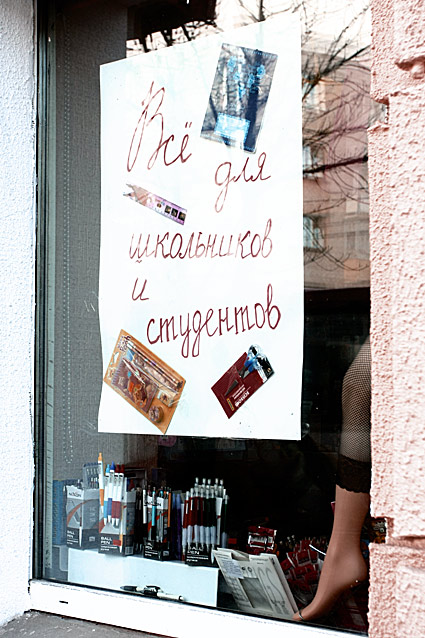 Всё
для
школьников
и
студентов
BALL PEN